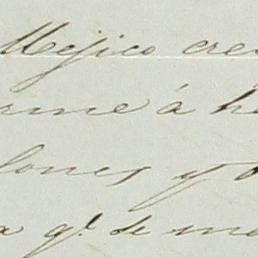 Mejico cre
rme á h
lones y
a q.e se me